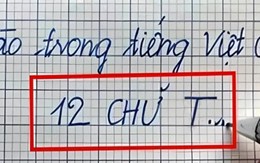 ào trong tiếng Việt c
12 CHỮ T...